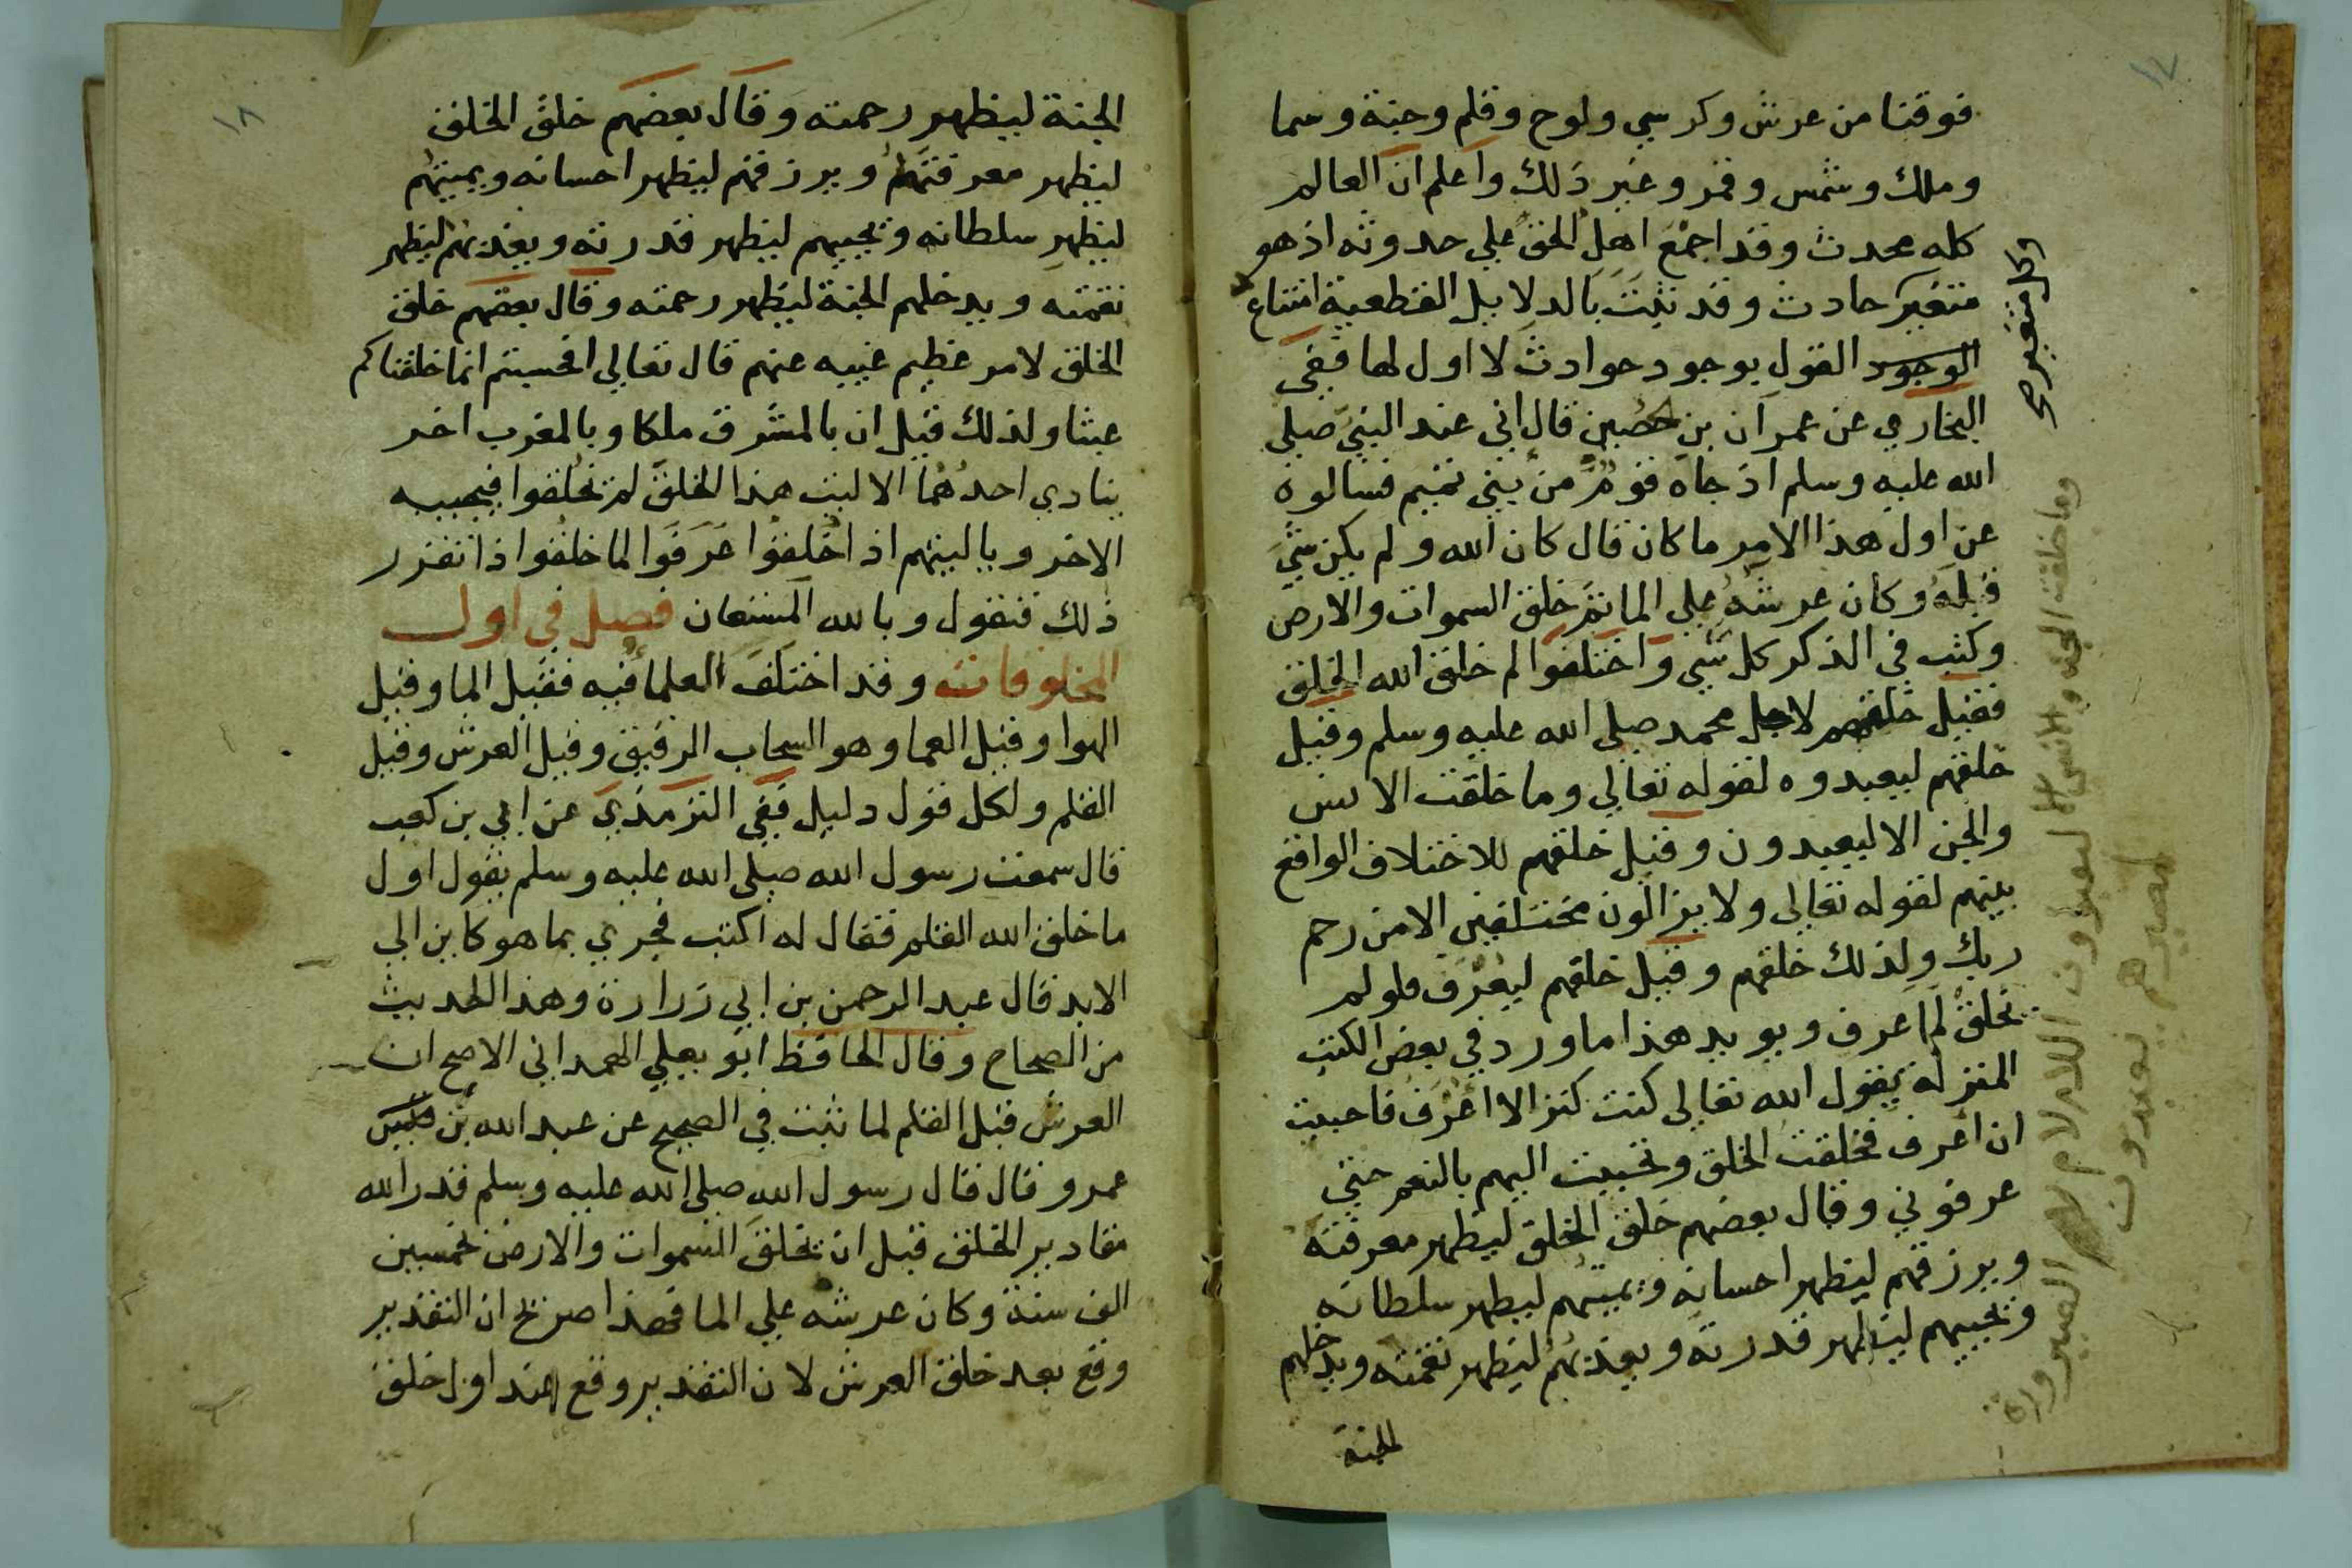 ١٧
فوقنا من عرش وكرسي ولوح وقلم وجنة وسما
وملك وشمس وقمر وغير ذلك واعلم ان العالم
كله محدث وقد اجمع اهل الحق علي حدوثه اذ هو
متغير حادث وقد ثبت بالدلايل القطعية امتناع
الوجود القول بوجود حوادث لا اول لها ففي
البخاري عن عمران بن حصين قال اني عند النبي صلي
الله عليه وسلم اذ جاه قوم من بني تميم فسالوه
عن اول هذا الامر ما كان قال كان الله ولم يكن شي
قبله وكان عرشه علي الما ثم خلق السموات والارض
وكتب في الذكر كل شي واختلفوا لم خلق الله الخلق
فقيل خلقهم لاجل محمد صلي الله عليه وسلم وقيل
خلقهم ليعبدوه لقوله تعالي وما خلقت الانس
والجن الا ليعبدون وقيل خلقهم للاختلاف الواقع
بينهم لقوله تعالي ولا يزالون مختلفين الا من رحم
ربك ولذلك خلقهم وقيل خلقهم ليعرف فلو لم
يخلق لما عرف ويويد هذا ما ورد في بعض الكتب
المنزله يقول الله تعالي كنت كنزا لا اعرف فاحببت
ان اعرف فخلقت الخلق وتحببت اليهم بالنعم حتي
عرفوني وقال بعضهم خلق الخلق ليظهر معرفته
ويرزقهم ليظهر احسانه ويميتهم ليظهر سلطانه
ويحييهم ليظهر قدرته ويعذبهم ليظهر نقمته ويدخلهم
الجنة
وكل متغير صح
وما خلقت الجن والانس الا ليعبدون اللام لام الصيرورة
لمصيرهم يعبدون
١٨
الجنة ليظهر رحمته وقال بعضهم خلق الخلق
ليظهر معرفتهم ويرزقهم ليظهر احسانه ويميتهم
ليظهر سلطانه ويحييهم ليظهر قدرته ويعذبهم ليظهر
نقمته ويدخلهم الجنة ليظهر رحمته وقال بعضهم خلق
الخلق لامر عظيم غيبه عنهم قال تعالي افحسبتم انما خلقناكم
عبثا ولذلك قيل ان بالمشرق ملكا وبالمغرب اخر
ينادي احدهما الا ليت هذا الخلق لم يخلقوا فيجيبه
الاخر ويا ليتهم اذ اخلقوا عرفوا لما خلقوا اذا تقرر
ذلك فنقول وبالله المستعان فصل في اول
المخلوقات وقد اختلف العلما فيه فقيل الما وقيل
الهوا وقيل العما وهو السحاب الرقيق وقيل العرش وقيل
القلم ولكل قول دليل ففي الترمذي عن ابي بن كعب
قال سمعت رسول الله صلي الله عليه وسلم يقول اول
ما خلق الله القلم فقال له اكتب فجري بما هو كاين الي
الابد قال عبد الرحمن بن ابي زرارة وهذا الحديث
من الصحاح وقال الحافظ ابو يعلي الهمداني الاصح ان
العرش قبل القلم لما ثبت في الصحيح عن عبد الله بن
عمرو قال قال رسول الله صلي الله عليه وسلم قدر الله
مقادير الخلق قبل ان يخلق السموات والارض بخمسين
الف سنة وكان عرشه علي الما فهذا صريح ان التقدير
وقع بعد خلق العرش لان التقدير وقع عند اول خلق